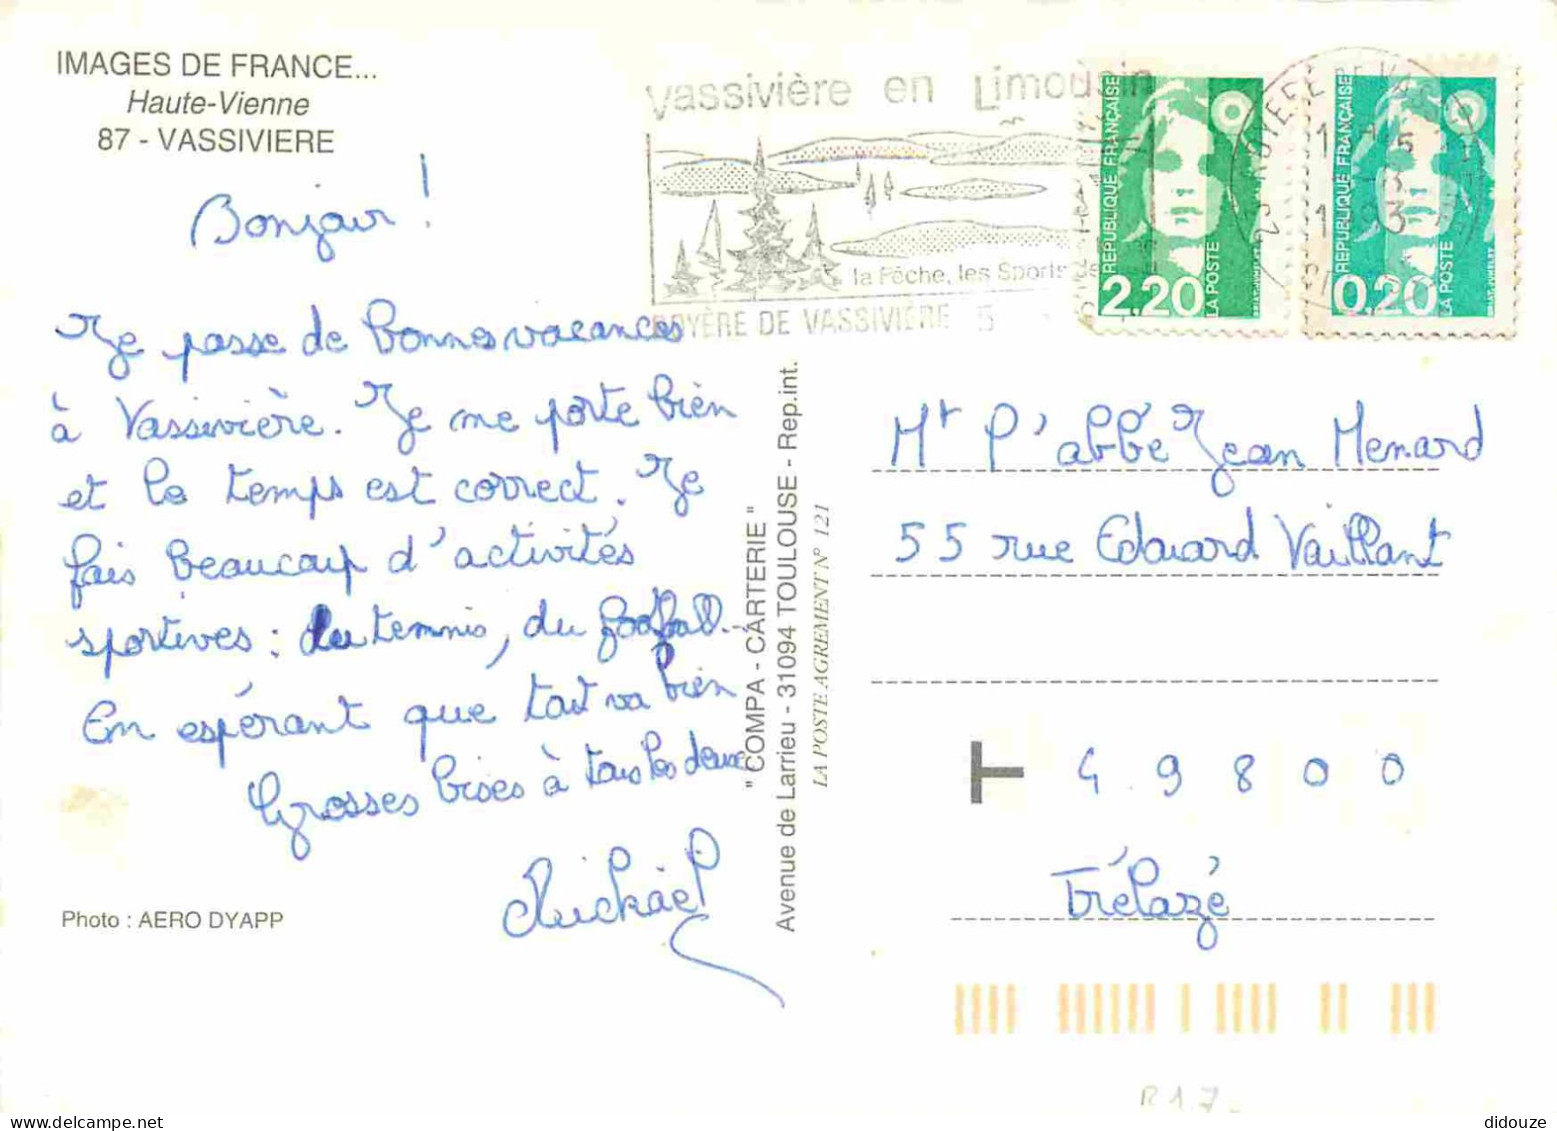 IMAGES DE FRANCE...
Haute-Vienne
87 - VASSIVIERE
Bonjour !
Je passe de bonnes vacances
à Vassivière. Je me porte bien
et le temps est correct. Je
fais beaucoup d'activités
sportives : du temnis, du football...
En espérant que tout va bien
Grosses bises à tous les deux
Mickaël
Photo : AERO DYAPP
" COMPA - CARTERIE "
Avenue de Larrieu - 31094 TOULOUSE - Rep.int.
LA POSTE AGREMENT N° 121
Vassivière en Limousin
la Pêche, les Sports de
ROYÈRE DE VASSIVIÈRE
REPUBLIQUE FRANÇAISE
2,20
LA POSTE
REPUBLIQUE FRANÇAISE
0,20
LA POSTE
23 ROYERE DE VASSIV
Mr l'abbé Jean Menard
55 rue Edouard Vaillant
T 49800
Trélazé
R17
didouze